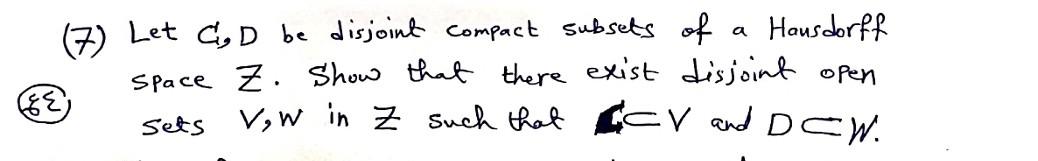 (7) Let C, D be disjoint compact subsets of a Hausdorff
space Z. Show that there exist disjoint open
sets V, W in Z such that C ⊂ V and D ⊂ W.